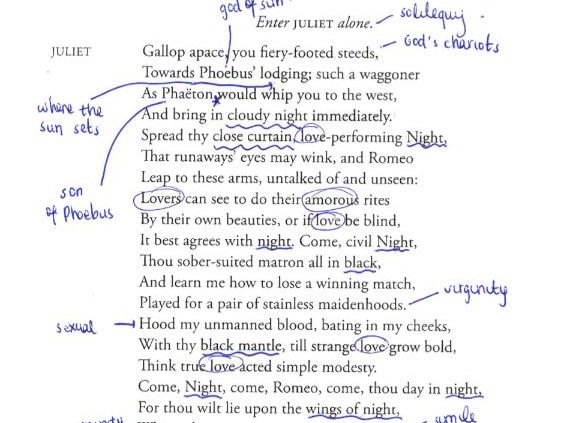 god of sun
Enter JULIET alone. soliloquy.
JULIET Gallop apace, you fiery-footed steeds, God's chariots
Towards Phoebus' lodging; such a waggoner
As Phaëton would whip you to the west,
where the sun sets
And bring in cloudy night immediately.
Spread thy close curtain, love-performing Night,
That runaways' eyes may wink, and Romeo
Leap to these arms, untalked of and unseen:
son of Phoebus
Lovers can see to do their amorous rites
By their own beauties, or if love be blind,
It best agrees with night. Come, civil Night,
Thou sober-suited matron all in black,
And learn me how to lose a winning match,
Played for a pair of stainless maidenhoods. virginity
sexual Hood my unmanned blood, bating in my cheeks,
With thy black mantle, till strange love grow bold,
Think true love acted simple modesty.
Come, Night, come, Romeo, come, thou day in night,
For thou wilt lie upon the wings of night,
simile